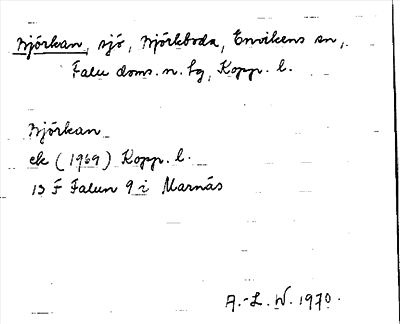 Björkan, sjö, Björkboda, Envikens sn,
Falu doms. n. lg, Kopp. l.
Björkan
ek (1969) Kopp. l.
13 F Falun 9 i Marnäs
A.-L. W. 1970.